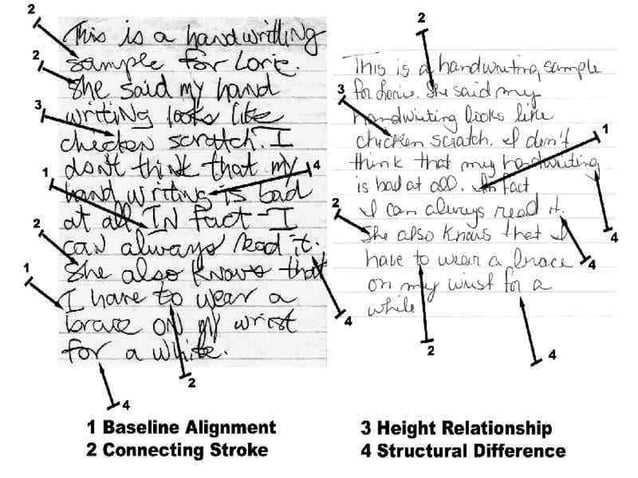 This is a handwritting
sample for Lorie.
She said my hand
writing looks like
chicken scratch. I
don't think that my
hand writing is bad
at all IN fact - I
can always read it.
She also knows that
I have to wear a
brace ON my wrist
for a while.
This is a handwriting sample
for Lorie. She said my
handwriting looks like
chicken scratch. I don't
think that my handwriting
is bad at all. In fact
I can always read it.
She also knows that I
have to wear a brace
on my wrist for a
while
2
2
3
1
2
1
4
4
2
4
2
3
1
2
4
4
2
4
1 Baseline Alignment
2 Connecting Stroke
3 Height Relationship
4 Structural Difference